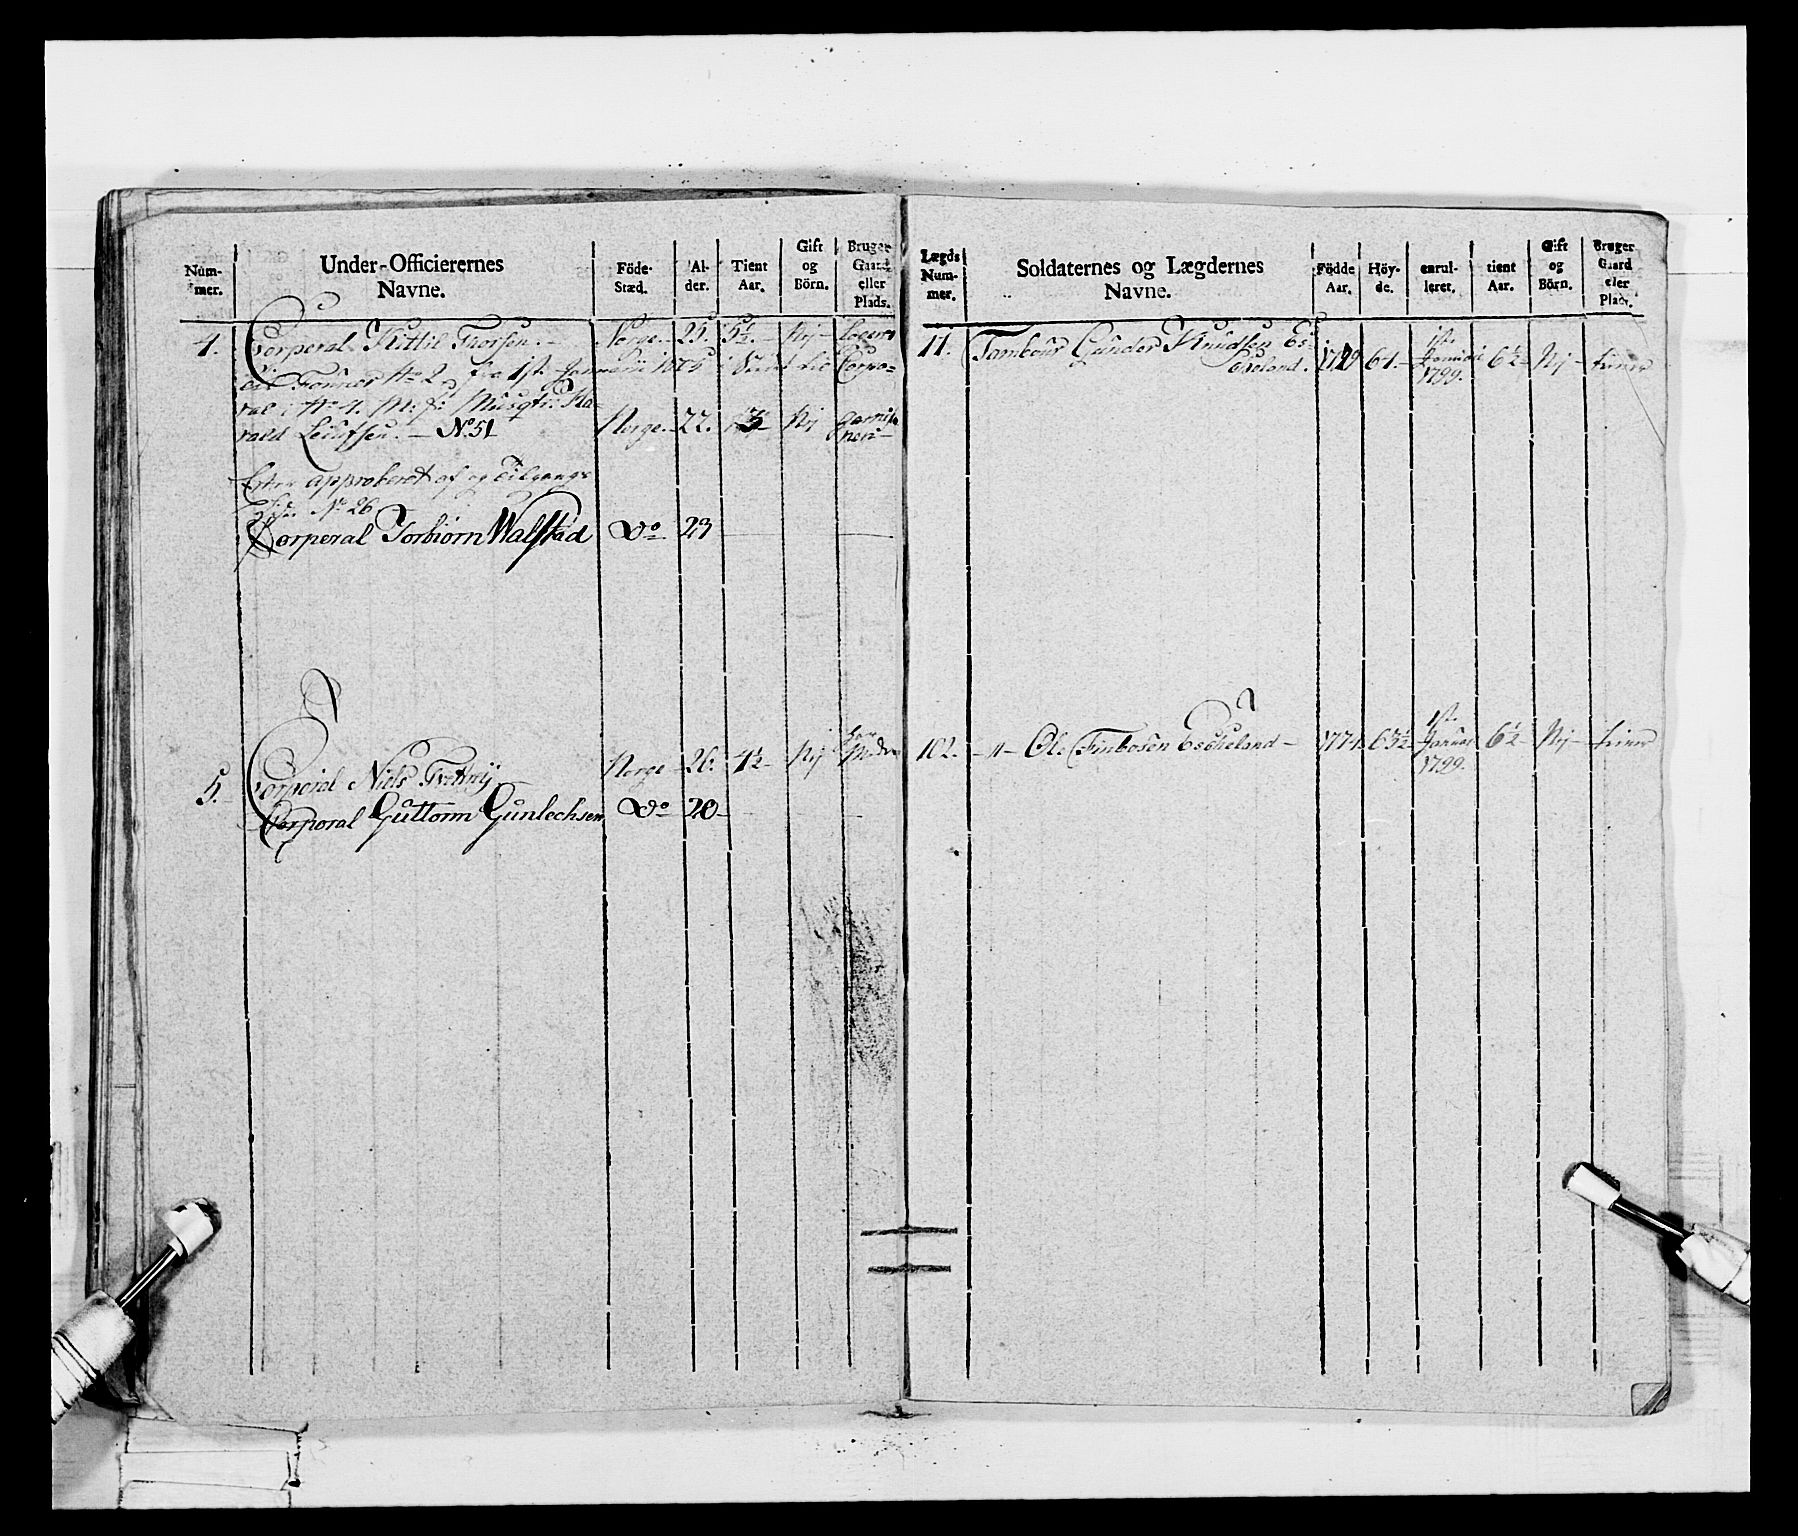 Num-
mer.
Under-Officierernes
Navne.
Föde-
Stæd.
Al-
der.
Tient
Aar.
Gift
og
Börn.
Bruger
Gaard
eller
Plads.
4. Corperal Kittil Thorsen. Norge. 25. 5½. Nÿ
No 2 fra 1ste Januarii 1805 Corpo=
ral i No 4.
Norge. 22. 3 Nÿ
No. 51
approberet af og Tilgangs
No 26
Corperal Torbiorn Walstad Do 23
5. Corperal Niels Norge 26. 4½ Nÿ
Corporal Guttorm Gunlechsen Do 20
Lægds
Num-
mer.
Soldaternes og Lægdernes
Navne.
Födde
Aar.
Höy-
de.
enrul-
leret.
tient
Aar.
Gift
og
Börn.
Bruger
Gaard
eller
Plads.
11. Tambour Gunder Knudsen Es=
cheland. 64. 1ste Januari 1799. 6½ Nÿ tiener
102. - " - Ole Finbosen Escheland - 1774. 63½ 1ste Januar 1799. 6½ Nÿ tiener